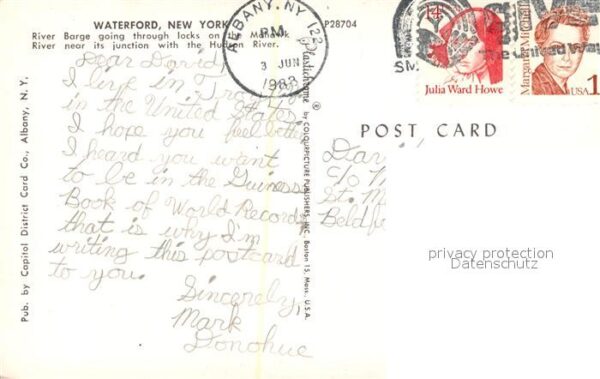 WATERFORD, NEW YORK
P28704
River Barge going through locks on the Mohawk
River near its junction with the Hudson River.
ALBANY, NY 122
PM
3 JUN
1988
14
Julia Ward Howe
Margaret Mitchell
USA 1
The United Way
Dear David,
I live in Troy
in the United States.
I hope you feel better
I heard you want
to be in the Guiness
Book of World Records
that is why I'm
writing this postcard
to you.
Sincerely,
Mark
Donohue
Pub. by Capitol District Card Co., Albany, N. Y.
Plastichrome ® by COLOURPICTURE PUBLISHERS, INC. Boston 15, Mass., U.S.A.
POST CARD
Dav
c/o
St. M
Beldfie
privacy protection
Datenschutz